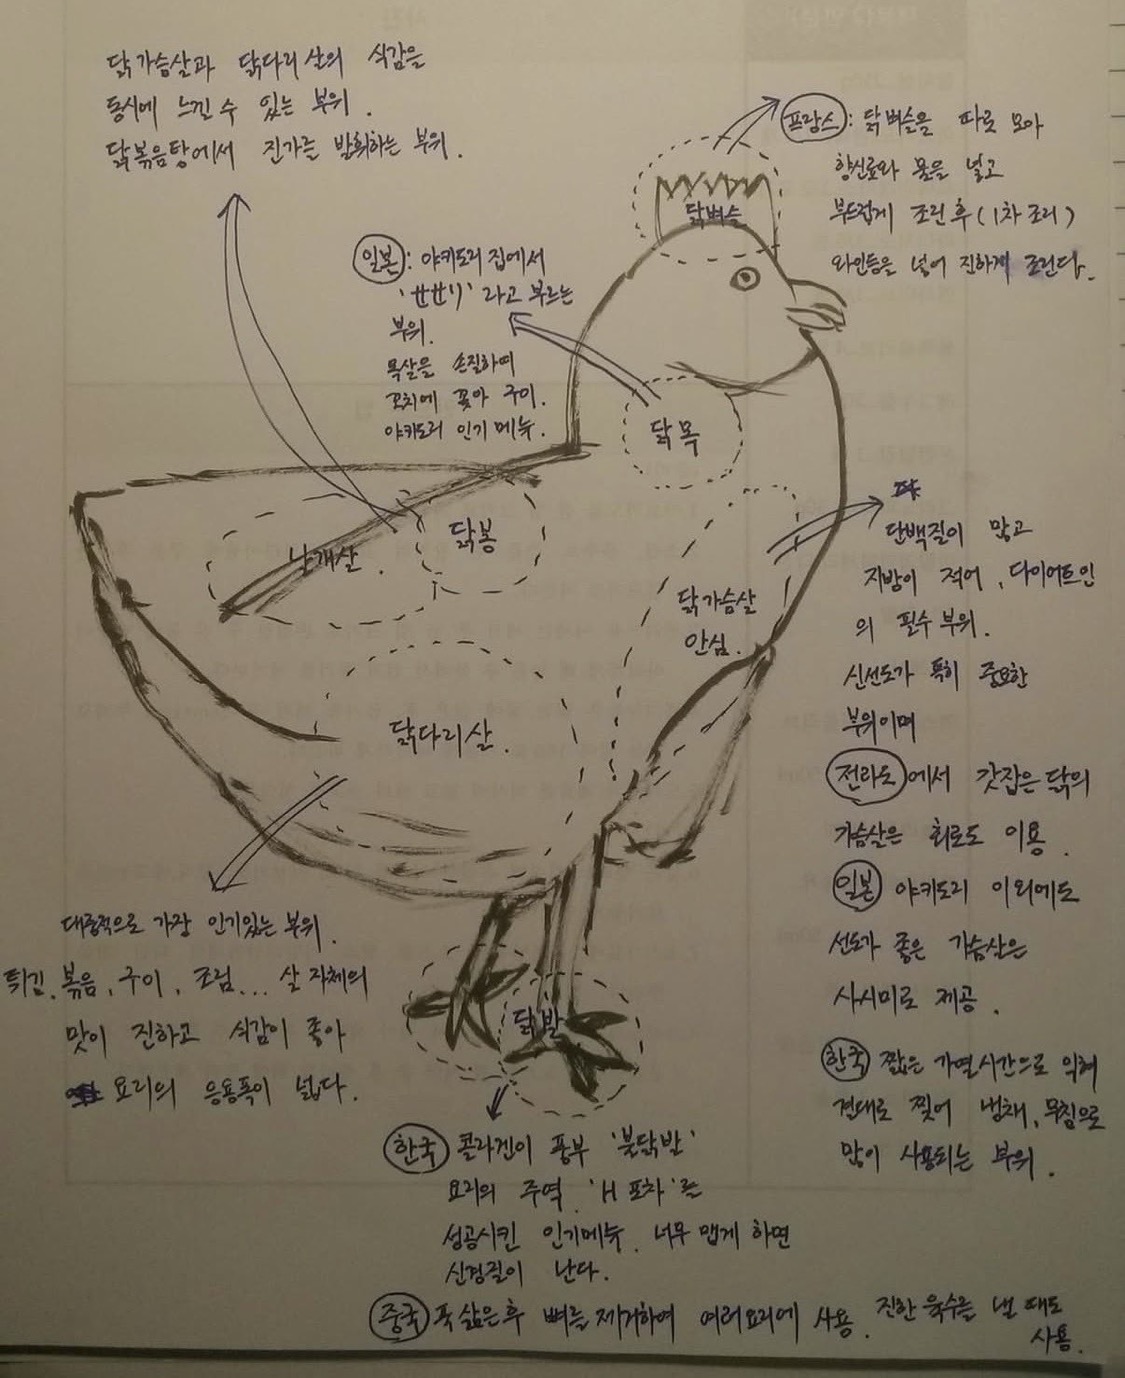 닭가슴살과 닭다리살의 식감을
동시에 느낄 수 있는 부위.
닭볶음탕에서 진가를 발휘하는 부위.
프랑스: 닭벼슬을 따로 모아
향신료와 물을 넣고
부드럽게 조린 후 (1차 조리)
와인등을 넣어 진하게 조린다.
닭벼슬
일본: 야키도리 집에서
'せせり' 라고 부르는
부위.
목살을 손질하여
꼬치에 꽂아 구이.
야키도리 인기메뉴.
닭목
날개살.
닭봉
닭가슴살
안심.
단백질이 많고
지방이 적어, 다이어트인
의 필수부위.
신선도가 특히 중요한
부위이며
전라도에서 갓잡은 닭의
가슴살은 회로도 이용.
일본 야키도리 이외에도
선도가 좋은 가슴살은
사시미로 제공.
한국 짧은 가열시간으로 익혀
결대로 찢어 냉채, 무침으로
많이 사용되는 부위.
닭다리살.
대중적으로 가장 인기있는 부위.
튀김, 볶음, 구이, 조림... 살 자체의
맛이 진하고 식감이 좋아
요리의 응용폭이 넓다.
닭발
한국 콜라겐이 풍부 '불닭발'
요리의 주역. 'H 포차'를
성공시킨 인기메뉴. 너무 맵게 하면
신경질이 난다.
중국 푹 삶은후 뼈를 제거하여 여러요리에 사용. 진한 육수를 낼 때도
사용.